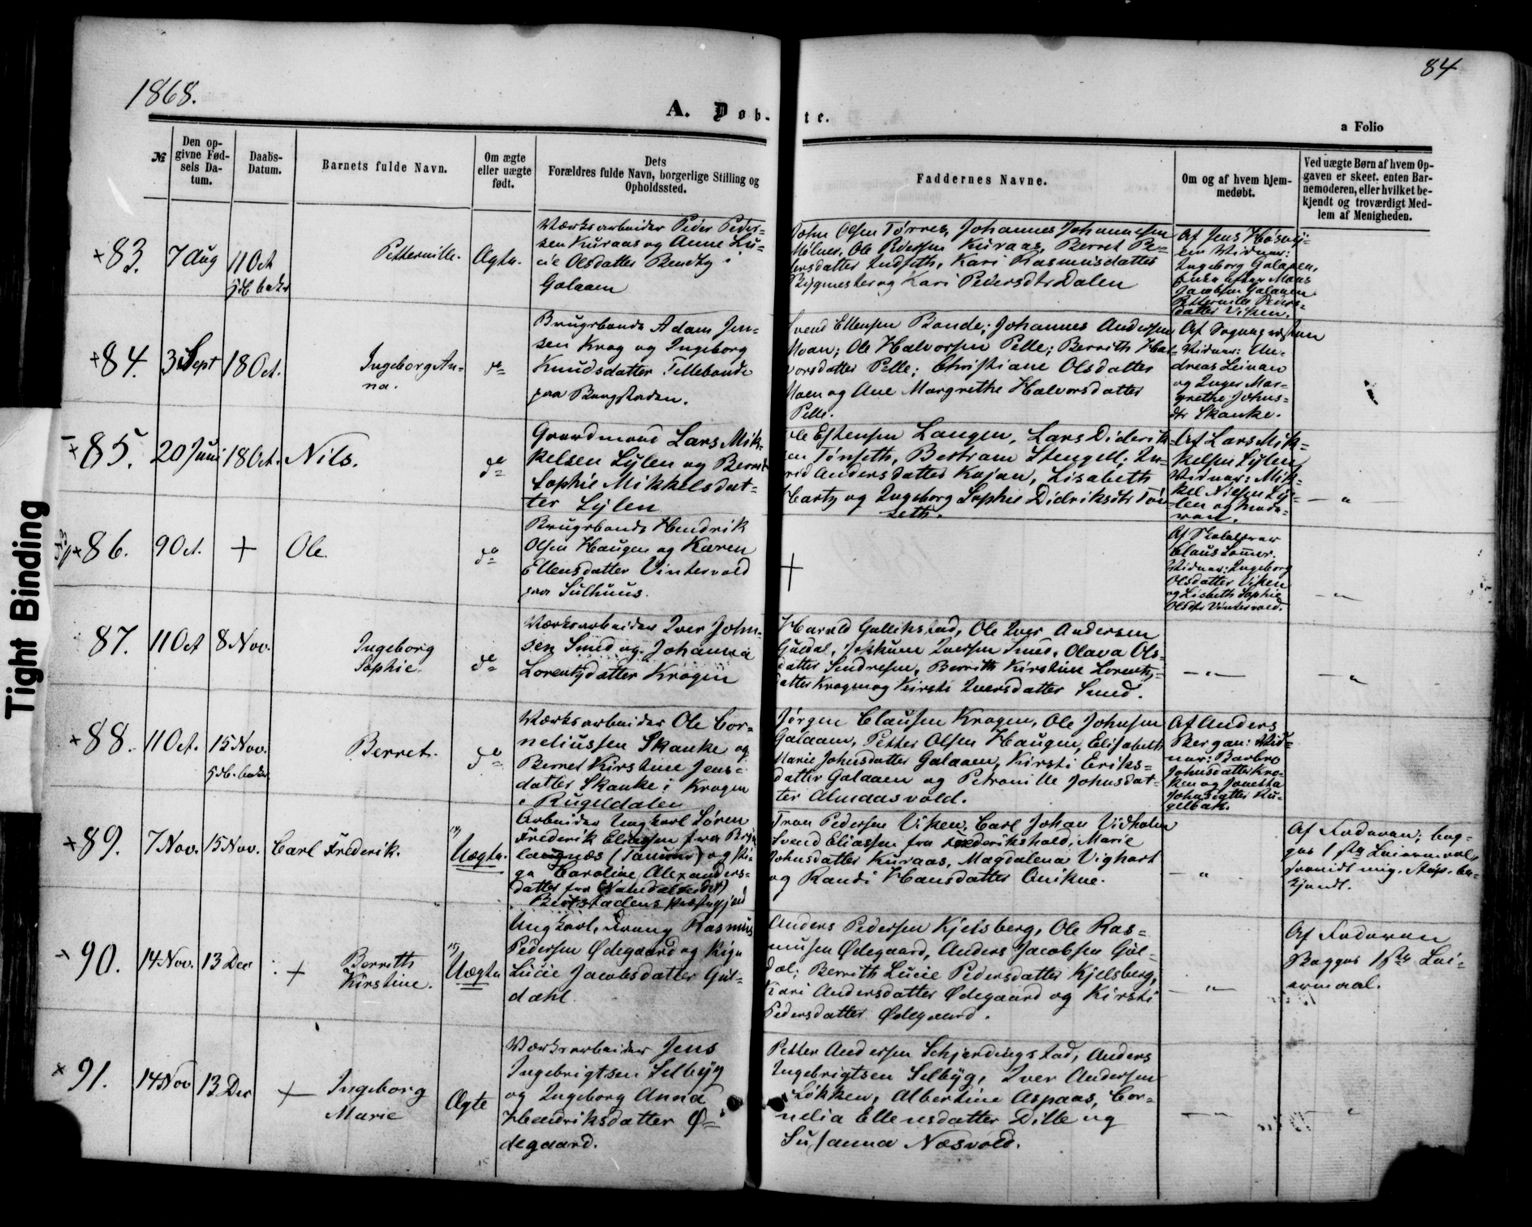 1868.
84
A. Døbte.
a Folio
№
Den opgivne Fødsels Datum.
Daabs-Datum.
Barnets fulde Navn.
Om ægte eller uægte født.
Dets
Forældres fulde Navn, borgerlige Stilling og
Opholdssted.
Faddernes Navne.
Om og af hvem hjem-
medøbt.
Ved uægte Børn af hvem Op-
gaven er skeet, enten Bar-
nemoderen, eller hvilket be-
kjendt og troværdigt Med-
lem af Menigheden.
83. 7 Aug 11 Oct
Petternille. Ægte.
Værksarbeider Peder Peder-
sen Kuraas og Anne Lu-
cie Olsdatter Bendtzy i
Galaaen
Olsen Tørres, Johannes Johannesen
Mølner, Ole Pedersen Kuraas, Berret Pe-
dersdatter Indseth, Kari Rasmusdatter
Bygmester og Kari Pedersdtr Dalen
Af Jens
Vidner:
Ingeborg Galaaen,
Jacobsen Galaaen
Petternille Peders-
datter Viken.
84. 3 Sept 18 Oct.
Ingeborg An-
na.
do
Brugsbonde Adam Jen-
sen Krog og Ingeborg
Knudsdatter Fellebonde
paa Borgstaden.
Svend Ellensen Bonde; Johannes Andersen
Moan; Ole Halvorsen Pelle; Berrith Hal-
vorsdatter Pelle; Christiane Olsdatter
Moen og Ane Margrethe Halvorsdatter
Pelle.
Vidner: An-
dreas Leinan
og Inger Mar-
grethe Johns-
dtr Skanke.
85. 20 Juni 18 Oct. Nils.
do
Gaardmand Lars Mik-
kelsen Sylen og Berret
Sophie Mikkelsdat-
ter Sylen
Ole Estensen Langen, Lars Diderik-
sen Tønseth, Bertram Stengel; In-
rid Andersdatter Kojan, Lisabeth
Hartz og Ingeborg Sophie Didriksdtr Tøn-
seth.
Af Lars Mik-
kelsen Sylen
Vidner: Mik-
kel Nilsen Sy-
len og Mode-
ren.
86. 9 Oct. + Ole.
do
Brugsbonde Hendrik
Olsen Haugen og Karen
Ellensdatter Vintervold
paa Sulhuus.
+
Af Skolelærer
Claus Sommer.
Vidner: Ingeborg
Olsdatter Viken
og Lisbeth Sophie
Olsdtr Vintervold.
87. 11 Oct 8 Nov.
Ingeborg
Sophie
do
Værksarbeider Iver John-
sen Smed og Johanna
Lorentzdatter Kragen
Harald Gullikstad, Ole Iver Andersen
Guldal, Jochum Iversen Smed, Olava Ols-
datter Sendresen, Berrith Kirstine Lorentz-
datter Kragen og Kirsti Iversdatter Smed.
88. 11 Oct. 15 Nov.
Berret.
do
Værksarbeider Ole Cor-
neliussen Skanke og
Berret Kirstine Jens-
datter Skanke i Kragen
i Rugeldalen
Jørgen Clausen Kragen, Ole Johnsen
Galaaen, Petter Olsen Haugen, Elisabeth
Marie Johnsdatter Galaaen, Kirsti Eriks-
datter Galaaen og Petronille Johnsdat-
ter Almaasvold.
Af Anders
Bergan: Vid-
ner: Barbro
Johnsdatter Kro-
ken og Jonetta
Johnsdatter Ru-
gelbak.
89. 7 Nov. 15 Nov. Carl Frederik.
Uægte.
Arbeider Ungkarl Søren
Frederik Eliassen fra
Caroline Alexanders-
datter fra
Tron Pedersen Viken, Carl Johan Vidholm
Svend Eliassen fra Frederikshald, Marie
Johnsdatter Kuraas, Magdalena Vighart
og Randi Hansdatter Enikne.
Af Faderen; beg-
ges 1ste Leiermaal
90. 14 Nov. 13 Dec +
Berrith
Kirstine.
Uægte
Ungkarl, Rasmus
Pedersen Ødegaard og
Lucie Jacobsdatter Gul-
dahl.
Anders Pedersen Kjelsberg, Ole Ras-
musen Ødegaard, Anders Jacobsen Gul-
dal; Berrith Lucie Pedersdatter Kjelsberg,
Kari Andersdatter Ødegaard og Kirsti
Pedersdatter Ødegaard.
Af Faderen
Begges 1ste Lei-
ermaal.
91. 14 Nov 13 Dec +
Ingeborg
Marie
Ægte
Værksarbeider Jens
Ingebrigtsen Selbyg
og Ingeborg Anna
Hendriksdatter Ø-
degaard.
Petter Andersen Schjerdingstad, Anders
Ingebrigtsen Selbyg, Iver Andersen
Løkken, Albertine Aspaas, Cor-
nelia Ellensdatter Dille og
Susanna Næsvold.
Tight Binding